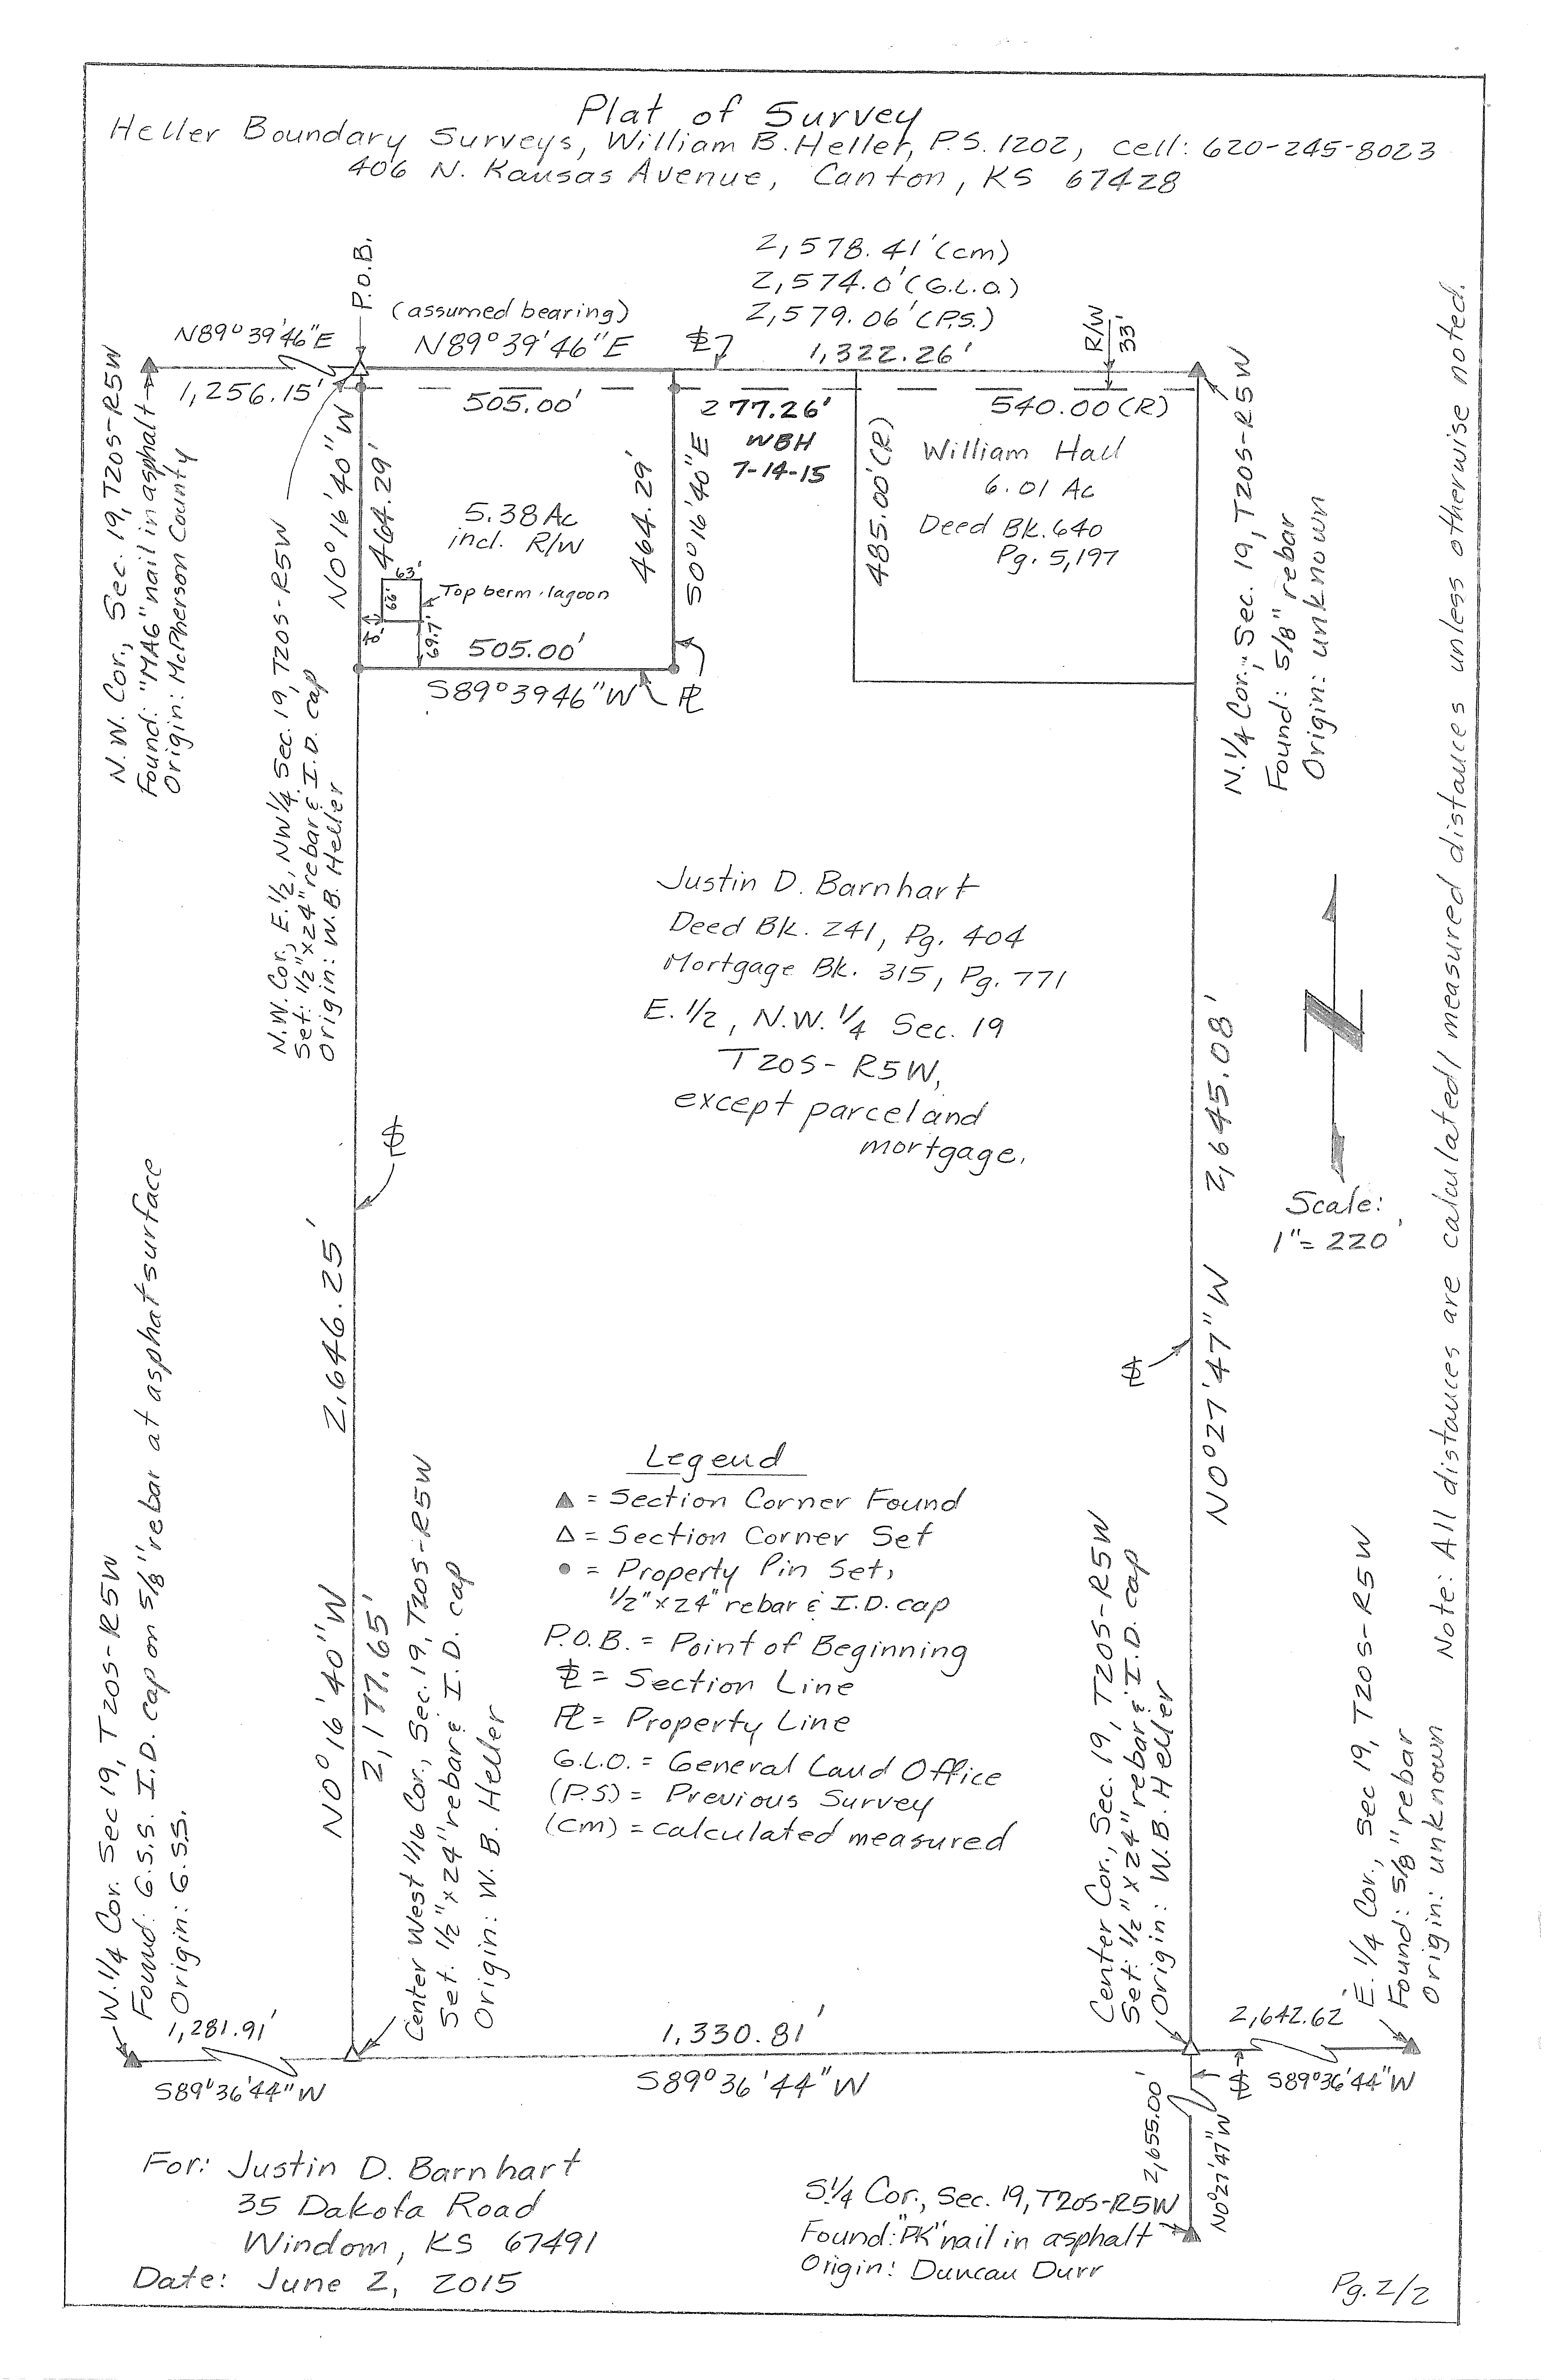 Plat of Survey
Heller Boundary Surveys, William B. Heller, P.S. 1202, cell: 620-245-8023
406 N. Kansas Avenue, Canton, KS 67428
2,578.41'(cm)
2,574.0'(G.L.O.)
2,579.06'(P.S.)
P.O.B.
(assumed bearing)
N89°39'46"E
N89°39'46"E
1,322.26'
R/W
33'
1,256.15'
505.00'
277.26'
WBH
7-14-15
540.00(R)
N.W. Cor., Sec. 19, T20S-R5W
Found: "MAG" nail in asphalt
Origin: McPherson County
N0°16'40"W
464.29'
464.29'
S0°16'40"E
485.00'(R)
William Hall
6.01 Ac
Deed Bk. 640
Pg. 5,197
5.38 Ac
incl. R/W
63'
66'
Top berm lagoon
40'
69.7'
505.00'
S89°3946"W
PL
N.1/4 Cor., Sec. 19, T20S-R5W
Found: 5/8" rebar
Origin: unknown
N.W. Cor., E.1/2, NW1/4 Sec. 19, T20S-R5W
Set: 1/2"x24" rebar & I.D. cap
Origin: W.B. Heller
Justin D. Barnhart
Deed Bk. 241, Pg. 404
Mortgage Bk. 315, Pg. 771
E. 1/2, N.W. 1/4 Sec. 19
T20S-R5W,
except parcel and
mortgage.
2,645.08'
N0°27'47"W
Scale:
1"= 220'
Note: All distances are calculated/measured distances unless otherwise noted.
2,646.25'
N0°16'40"W
2,177.65'
Legend
▲ = Section Corner Found
Δ = Section Corner Set
● = Property Pin Set,
1/2"x24" rebar & I.D. cap
P.O.B. = Point of Beginning
= Section Line
PL = Property Line
G.L.O. = General Land Office
(P.S.) = Previous Survey
(cm) = calculated measured
W.1/4 Cor. Sec 19, T20S-R5W
Found: G.S.S. I.D. cap on 5/8" rebar at asphat surface
Origin: G.S.S.
Center West 1/16 Cor., Sec. 19, T20S-R5W
Set: 1/2"x24" rebar & I.D. cap
Origin: W. B. Heller
Center Cor., Sec. 19, T20S-R5W
Set: 1/2"x24" rebar & I.D. cap
Origin: W.B. Heller
E. 1/4 Cor., Sec 19, T20S-R5W
Found: 5/8" rebar
Origin: unknown
1,281.91'
1,330.81'
2,642.62'
S89°36'44"W
S89°36'44"W
S89°36'44"W
2,655.00'
N0°27'47"W
For: Justin D. Barnhart
35 Dakota Road
Windom, KS 67491
Date: June 2, 2015
S.1/4 Cor., Sec. 19, T20S-R5W
Found: "PK" nail in asphalt
Origin: Duncan Durr
Pg. 2/2